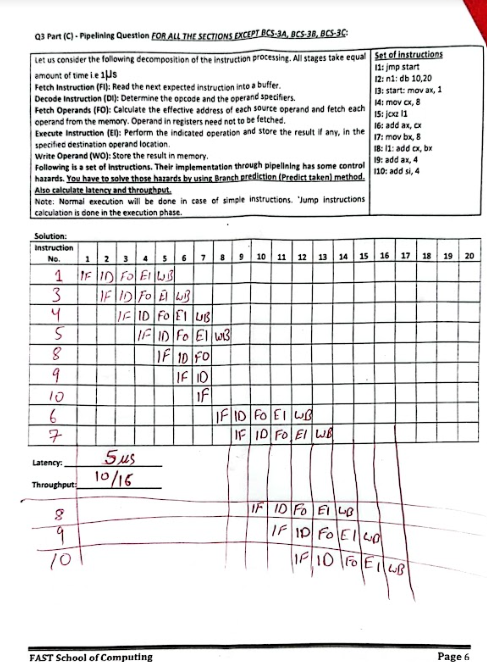 Q3 Part (C) - Pipelining Question FOR ALL THE SECTIONS EXCEPT BCS-3A, BCS-3B, BCS-3C:
Let us consider the following decomposition of the instruction processing. All stages take equal
amount of time i.e 1µs
Fetch Instruction (FI): Read the next expected instruction into a buffer.
Decode Instruction (DI): Determine the opcode and the operand specifiers.
Fetch Operands (FO): Calculate the effective address of each source operand and fetch each
operand from the memory. Operand in registers need not to be fetched.
Execute Instruction (EI): Perform the indicated operation and store the result if any, in the
specified destination operand location.
Write Operand (WO): Store the result in memory.
Following is a set of Instructions. Their implementation through pipelining has some control
hazards. You have to solve those hazards by using Branch prediction (Predict taken) method.
Also calculate latency and throughput.
Note: Normal execution will be done in case of simple instructions. 'Jump instructions
calculation is done in the execution phase.
Set of Instructions
I1: jmp start
I2: n1: db 10,20
I3: start: mov ax, 1
I4: mov cx, 8
I5: jcxz l1
I6: add ax, cx
I7: mov bx, 8
I8: l1: add cx, bx
I9: add ax, 4
I10: add si, 4
Solution:
Instruction
No. 1 2 3 4 5 6 7 8 9 10 11 12 13 14 15 16 17 18 19 20
1 IF ID FO EI WB
3 IF ID FO EI WB
4 IF ID FO EI WB
5 IF ID FO EI WB
8 IF ID FO
9 IF ID
10 IF
6 IF ID FO EI WB
7 IF ID FO EI WB
Latency: 5us
Throughput: 10/16
8 IF ID FO EI WB
9 IF ID FO EI WB
10 IF ID FO EI WB
FAST School of Computing Page 6